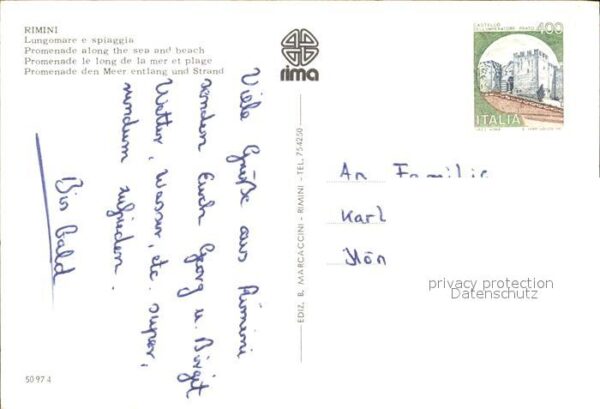 RIMINI
Lungomare e spiaggia
Promenade along the sea and beach
Promenade le long de la mer et plage
Promenade den Meer entlang und Strand
rima
CASTELLO
DELL'IMPERATORE PRATO
400
ITALIA
Viele Grüße aus Rimini
senden Euch Georg u. Birgit
Wetter, Wasser, etc. super,
rundum zufrieden.
Bis bald
EDIZ. B. MARCACCINI - RIMINI - TEL. 754250
An Familie
Karl
privacy protection
Datenschutz
50 97 4